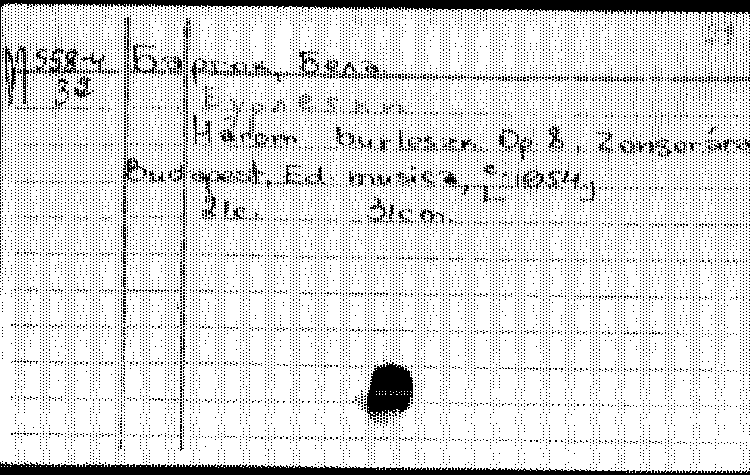 М 558-4 Барток, Бела
Бурлески
Három burleszk. Op 8. Zongorára
Budapest, Ed. musica, [c 1954]
21c. 31cm.